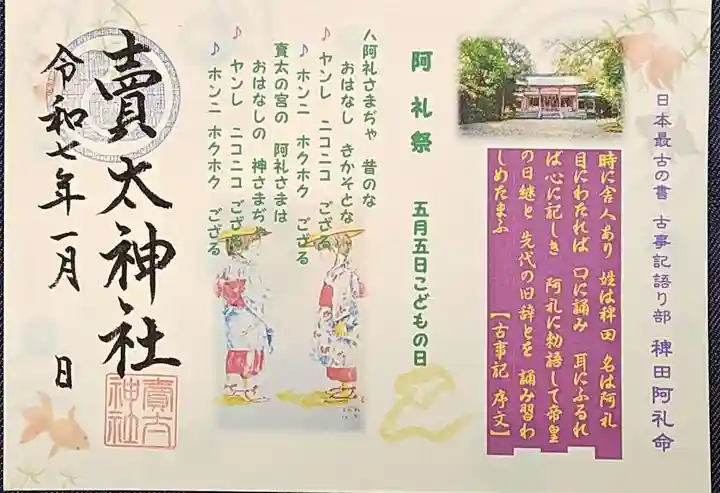 日本最古の書 古事記語り部 稗田阿礼命
時に舎人あり 姓は稗田 名は阿礼
目にわたれば 口に誦み 耳にふるれ
ば心に記しき 阿礼に勅語して帝皇
の日継と 先代の旧辞とを 誦み習わ
しめたまふ 【古事記 序文】
阿礼祭 五月五日こどもの日
阿礼さまぢゃ 昔のな
おはなし きかそとな
♪ ヤンレ ニコニコ ござる
♪ ホンニ ホクホク ござる
賣太の宮の 阿礼さまは
おはなしの 神さまぢゃ
♪ ヤンレ ニコニコ ござる
♪ ホンニ ホクホク ござる
賣太神社
賣太
神社
令和七年一月 日